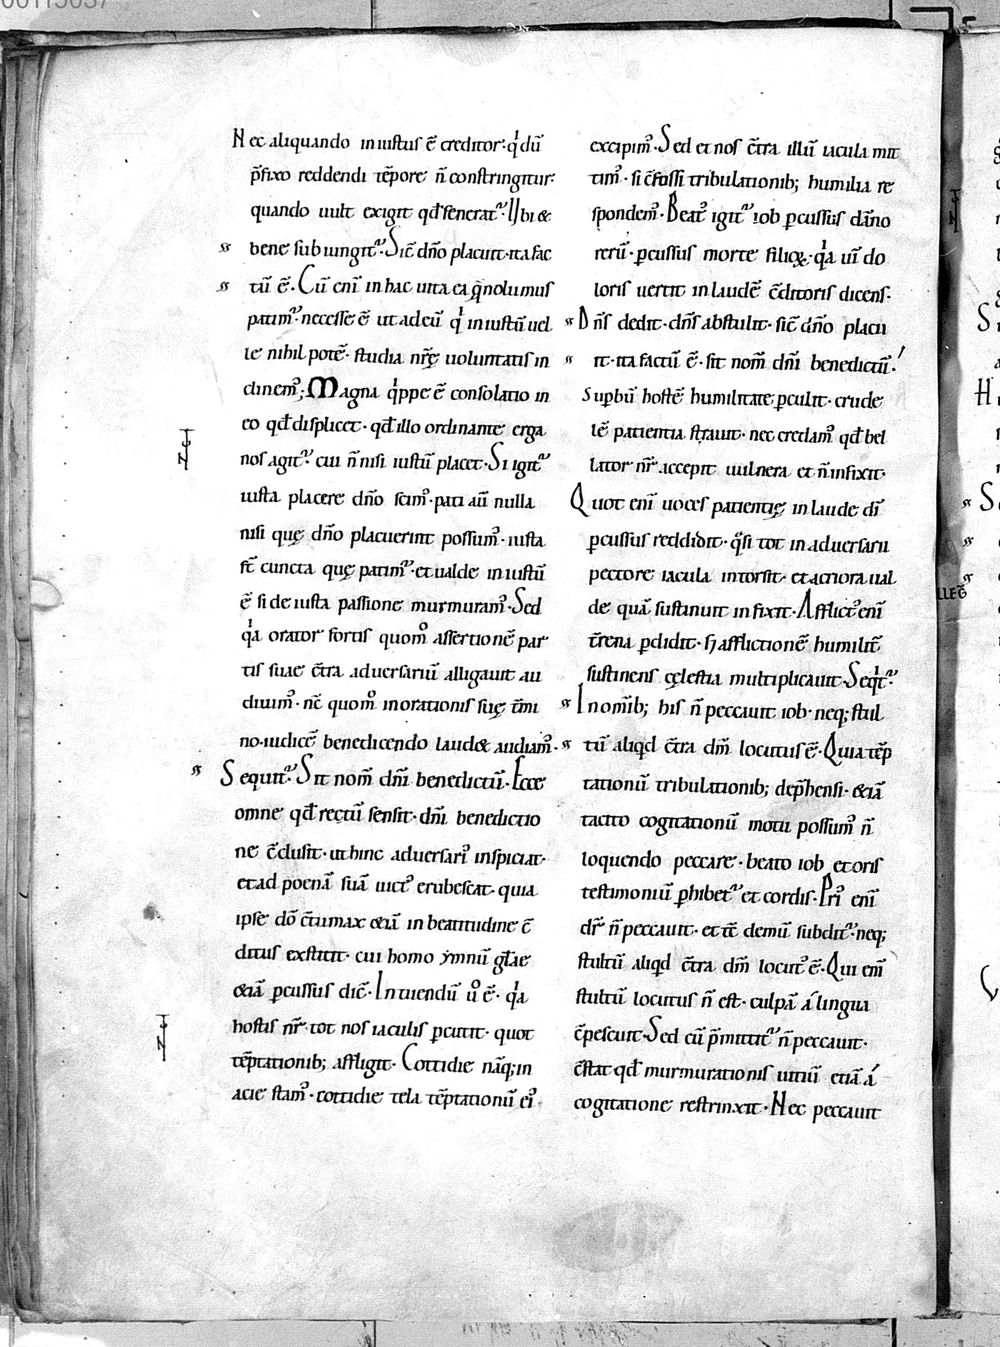 Nec aliquando iniustus ē creditor·q̍ dū
p̄fixo reddendi tēpore n̄ constringitur
quando uult exigit qđ feneratᷣ· Ubi &
bene subiungitᷣ· Sic̄ dn̄o placuit·ita fac
tū ē· Cū eni̅ in hac uita ea q̄ nolumus
patimꝰ·necesse ē ut ad eū q̍ iniustū uel
le nihil potē· studia nr̄ę uoluntatis in
clinemꝰ; Magna q̍ppe ē consolatio in
eo qđ displicet· qđ illo ordinante erga
nos agitᷣ· cui n̄ nisi iustū placet· Si igitᷣ
iusta placere dn̄o scimꝰ· pati aū nulla
nisi quę dn̄o placuerint possumꝰ· iusta
st̄ cuncta quę patimꝰ· et ualde iniustū
ē si de iusta passione murmuramꝰ· Sed
q̍a orator fortis quom̊ assertionē par
tis suae c̄tra aduersariū alligauit au
diuimꝰ· nc̄ quom̊ in orationis suę t̄mi
no·iudicē benedicendo laud& audiamꝰ·
Sequitᷣ· Sit nom̄ dn̄i benedictū· Ecce
omne qđ rectū sensit· dn̄i benedictio
ne c̄clusit· ut hinc aduersariꝰ inspiciat·
et ad poenā suā uictꝰ erubescat· quia
ipse dō c̄tumax &iā in beatitudine c̄
ditus exstitit· cui homo ymnū glae
&iā ꝑcussus dic̄· Intuendū ů ē· q̍a
hostis nr̄ tot nos iaculis ꝑcutit· quot
tēptationib; affligit· Cottidie nāq; in
acie stamꝰ· cottidie tela tēptationū eiꝰ
excipimꝰ· Sed et nos c̄tra illū iacula mit
timꝰ· si c̄fossi tribulationib; humilia re
spondemꝰ· Beatꝰ igitᷣ iob ꝑcussus dāno
rerū· ꝑcussus morte filioꝝ· q̍a uī do
loris uertit in laudē c̄ditoris dicens·
Dn̄s dedit· dn̄s abstulit· sic̄ dn̄o placu
it· ita factū ē· sit nom̄ dn̄i benedictū·
Supbū hostē humilitate ꝑculit· crude
lē patientia strauit· nec credamꝰ qđ bel
lator nr̄ accepit uulnera et n̄ infixit·
Quot eni̅ uoces patientię in laude di̅
ꝑcussus reddidit· q̍si tot in aduersarii
pectore iacula intorsit· et acriora ual
de quā sustinuit infixit· Afflictꝰ eni̅
t̄rena ꝑdidit· sꝫ afflictionē humilit̄
sustinens cęlestia multiplicauit· Seq̍tᷣ·
In omīb; his n̄ peccauit iob· neq; stul
tū aliqd c̄tra dm̄ locutus ē· Quia tēp
tationū tribulationib; dep̄hensi· &iā
tacito cogitationū motu possumꝰ n̄
loquendo peccare· beato iob et oris
testimoniū ꝑhibetᷣ et cordis· Priꝰ eni̅
dr̄ n̄ peccauit· et tc̄ demū subditᷣ· neq;
stultū aliqd c̄tra dm̄ locutꝰ ē· Qui eni̅
stultū locutus n̄ est· culpā á lingua
c̄pescuit· Sed cū p̄mittitᷣ n̄ peccauit·
c̄stat qđ murmurationis uitiū etiā á
cogitatione restrinxit· Nec peccauit